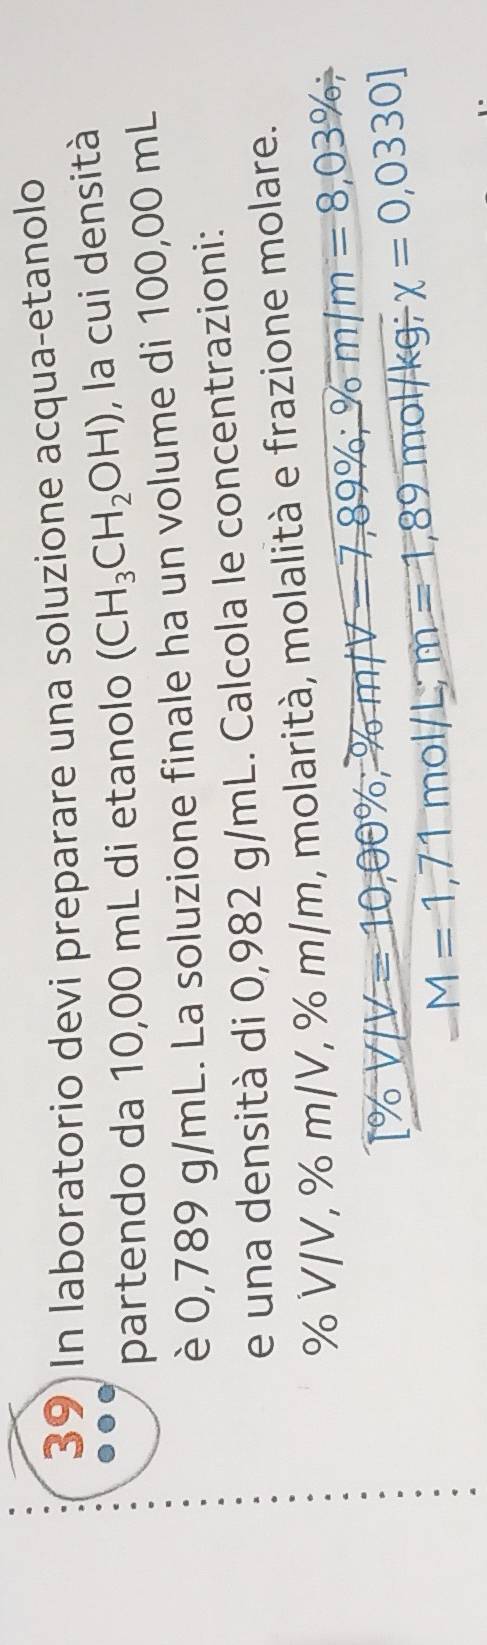 39 In laboratorio devi preparare una soluzione acqua-etanolo
partendo da 10,00 mL di etanolo (CH₃CH₂OH), la cui densità
è 0,789 g/mL. La soluzione finale ha un volume di 100,00 mL
e una densità di 0,982 g/mL. Calcola le concentrazioni:
% V/V, % m/V, % m/m, molarità, molalità e frazione molare.
[% V/V = 10,00%; % m/V = 7,89%; % m/m = 8,03%;
M = 1,71 mol/L; m = 1,89 mol/kg; χ = 0,0330]